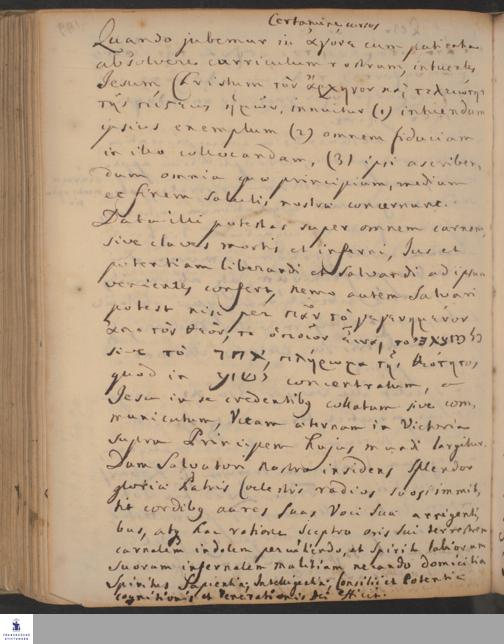 Certamine cursus
Quando jubemur in ἀγῶνι cum patientia
absolvere curriculum nostrum, intuentes
Jesum Christum τὸν ἀρχηγὸν καὶ τελειωτὴν
τῆς πίστεως ἡμῶν, innuitur (1) intuendum
ipsius exemplum (2) omnem fiduciam
in illo collocandam, (3) ipsi ascriben,
dum omnia quae principium, medium
et finem salutis nostrae concernunt.
Data illi potestas super omnem carnem,
sive claves mortis et inferni, Jus et
potentiam liberandi et salvandi ad ipsum
venientes confert, nemo autem salvari
potest nisi per τὸ γεγεννημένον
τὸν θεὸν, το
sive τὸ πλήρωμα τῆς θεότητος
quod in ישוע concentratum, a
Jesu in se credentibus collatum sive com,
municatum, Vitam aeternam in Victoria
supra Principem hujus mundi largitur.
Dum Salvatori nostro insidens splendor
gloriae Patris coelestis radios suos immit,
tit cordibus aures suas Voci suae arrigenti,
bus, atq hac ratione sceptro oris sui terrestrem
carnalem indolem percutiendo, et Spiritu labiorum
suorum infernalem malitiam necando domicilia
Spiritus Sapientiae, Intelligentiae, Consilii et Potentiae
Cognitionis et Venerationis Dei efficit.
FRANCKESCHE
STIFTUNGEN